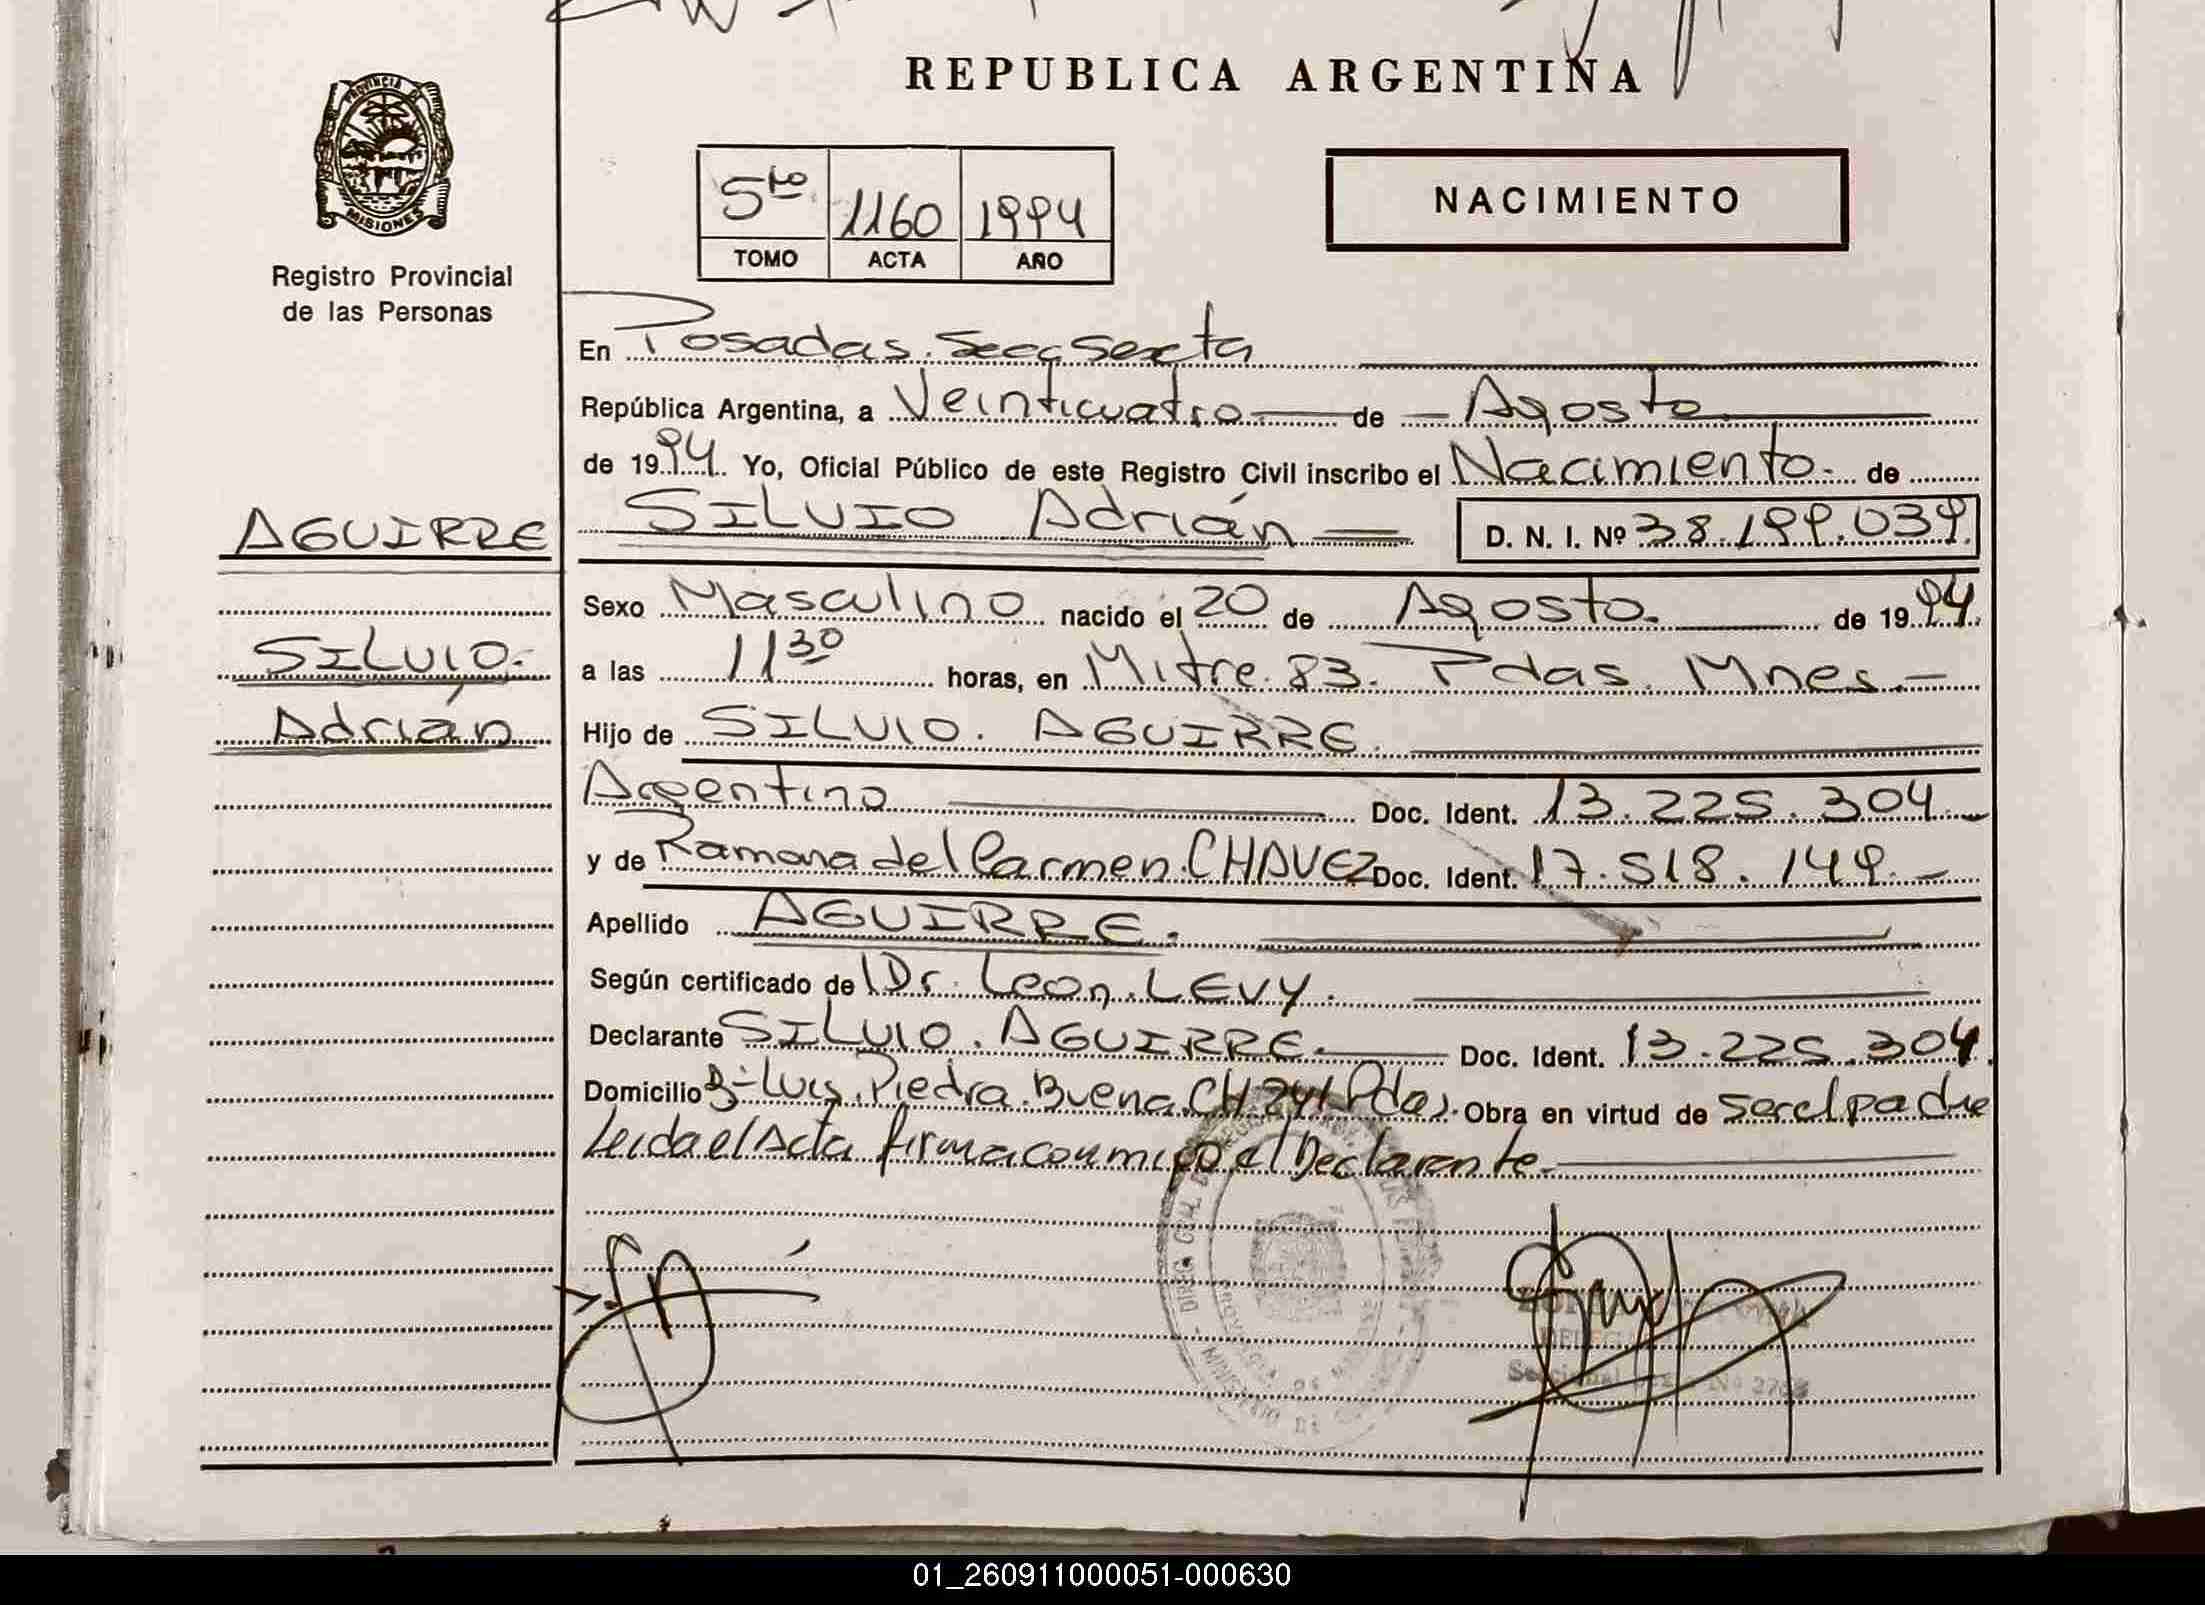 REPUBLICA ARGENTINA
PROVINCIA DE
MISIONES
Registro Provincial
de las Personas
5to 1160 1994
TOMO ACTA AÑO
NACIMIENTO
En Posadas. Secc Sexta
República Argentina, a Veinticuatro de Agosto
de 1994. Yo, Oficial Público de este Registro Civil inscribo el Nacimiento. de
AGUIRRE
SILVIO Adrián D. N. I. Nº 38.199.039.
Sexo Masculino nacido el 20 de Agosto. de 1994.
SILVIO.
a las 11 30 horas, en Mitre. 83. Pdas. Mnes.
Adrián
Hijo de SILVIO. AGUIRRE.
Argentino Doc. Ident. 13.225.304.
y de Ramona del Carmen. CHAVEZ Doc. Ident. 17.518.149.
Apellido AGUIRRE.
Según certificado de Dr. Leon. LEVY.
Declarante SILVIO. AGUIRRE. Doc. Ident. 13.225.304.
Domicilio B- Luis. Piedra. Buena. CH. 241 Pdas. Obra en virtud de ser el padre
Leida el Acta firma conmigo el Declarante.
01_260911000051-000630